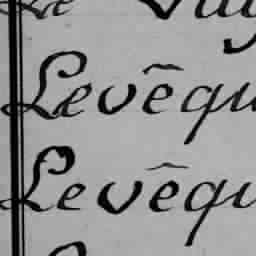 Levêqu
Levêqu